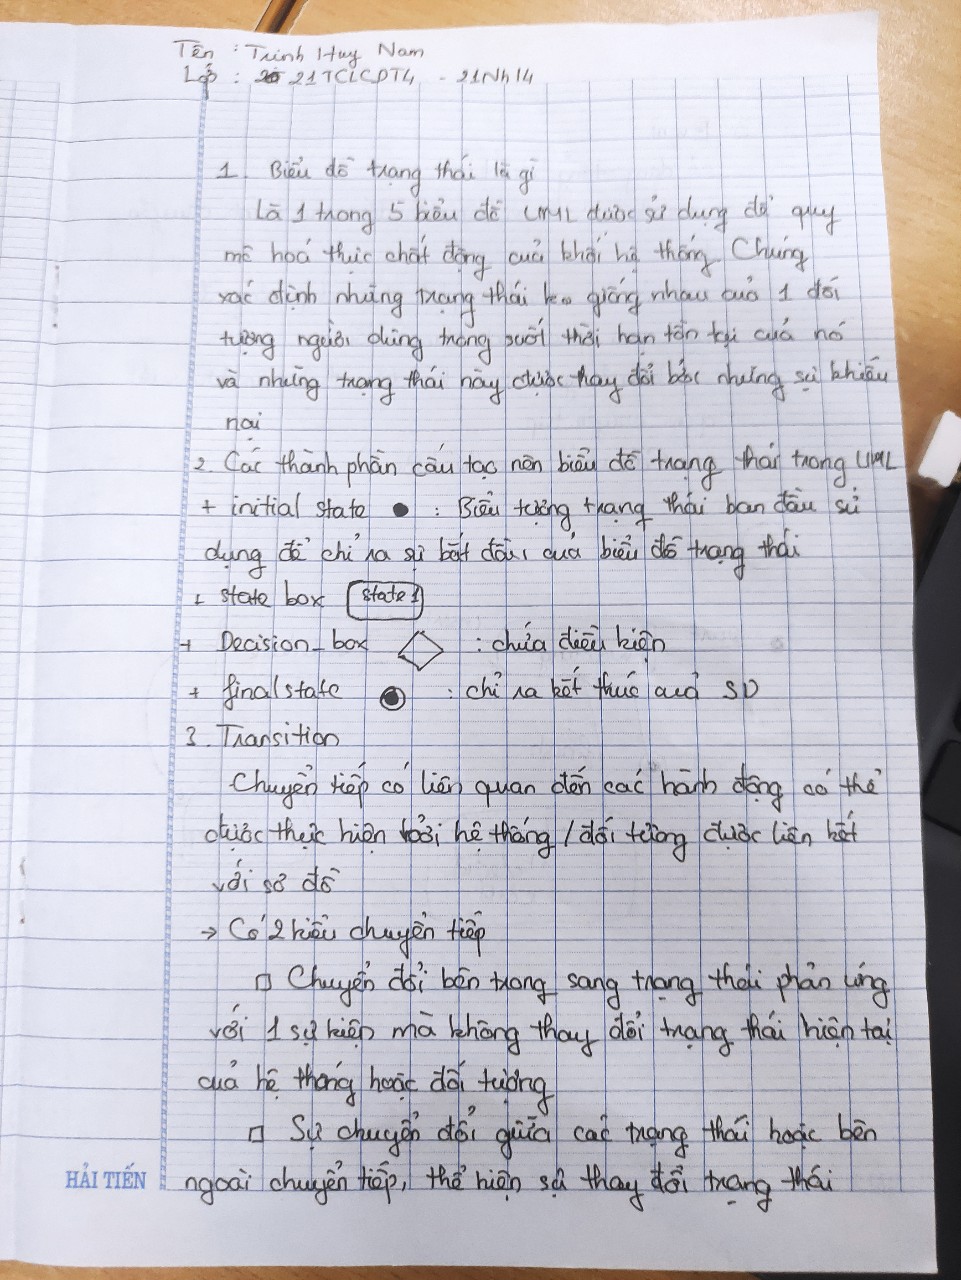 Tên : Trinh Huy Nam
Lớp : 21TCLCDT4 - 21Nh14
1. Biểu đồ trạng thái là gì
Là 1 trong 5 biểu đồ UML được sử dụng để quy
mô hoá thực chất động của khối hệ thống Chúng
xác định những trạng thái giống nhau của 1 đối
tượng người dùng trong suốt thời hạn tồn tại của nó
và những trạng thái này được thay đổi bởi những sự khiếu
nại
2. Các thành phần cấu tạo nên biểu đồ trạng thái trong UML
+ initial state : Biểu tượng trạng thái ban đầu sử
dụng để chỉ ra sự bắt đầu của biểu đồ trạng thái
+ state box State 1
+ Decision_box : chứa điều kiện
+ final state : chỉ ra kết thúc của SD
3. Transition
Chuyển tiếp có liên quan đến các hành động có thể
được thực hiện bởi hệ thống / đối tượng được liên kết
với sơ đồ
→ Có 2 kiểu chuyển tiếp
□ Chuyển đổi bên trong sang trạng thái phản ứng
với 1 sự kiện mà không thay đổi trạng thái hiện tại
của hệ thống hoặc đối tượng
□ Sự chuyển đổi giữa các trạng thái hoặc bên
HẢI TIẾN
ngoài chuyển tiếp, thể hiện sự thay đổi trạng thái